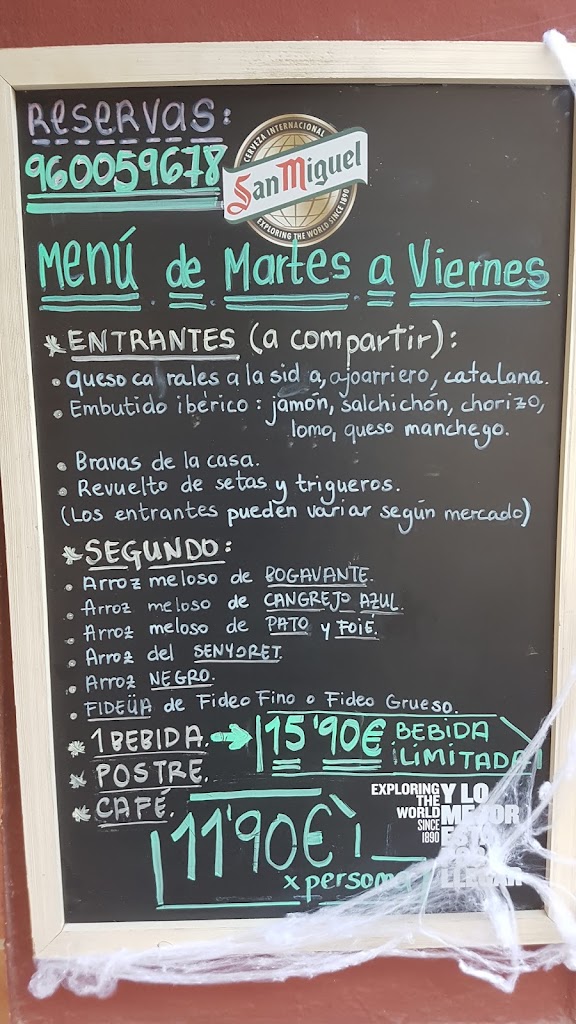 Reservas:
960059678
CERVEZA INTERNACIONAL
San Miguel
EXPLORING THE WORLD SINCE 1890
Menú de Martes a Viernes
* ENTRANTES (a compartir):
• Queso ca rales a la sid a, ajoarriero, catalana.
• Embutido ibérico: jamón, salchichón, chorizo,
lomo, queso manchego.
• Bravas de la casa.
• Revuelto de setas y trigueros.
(Los entrantes pueden variar según mercado)
* SEGUNDO:
• Arroz meloso de BOGAVANTE.
• Arroz meloso de CANGREJO AZUL.
• Arroz meloso de PATO y FOIE.
• Arroz del SENYORET.
• Arroz NEGRO.
• FIDEÜA de Fideo Fino o Fideo Grueso.
* 1 BEBIDA. → 15'90€ BEBIDA
ILIMITADA
* POSTRE.
* CAFÉ.
11'90€
x persona
EXPLORING
THE
WORLD
SINCE
1890
Y LO
MEJOR
ESTÁ
LLEGAR